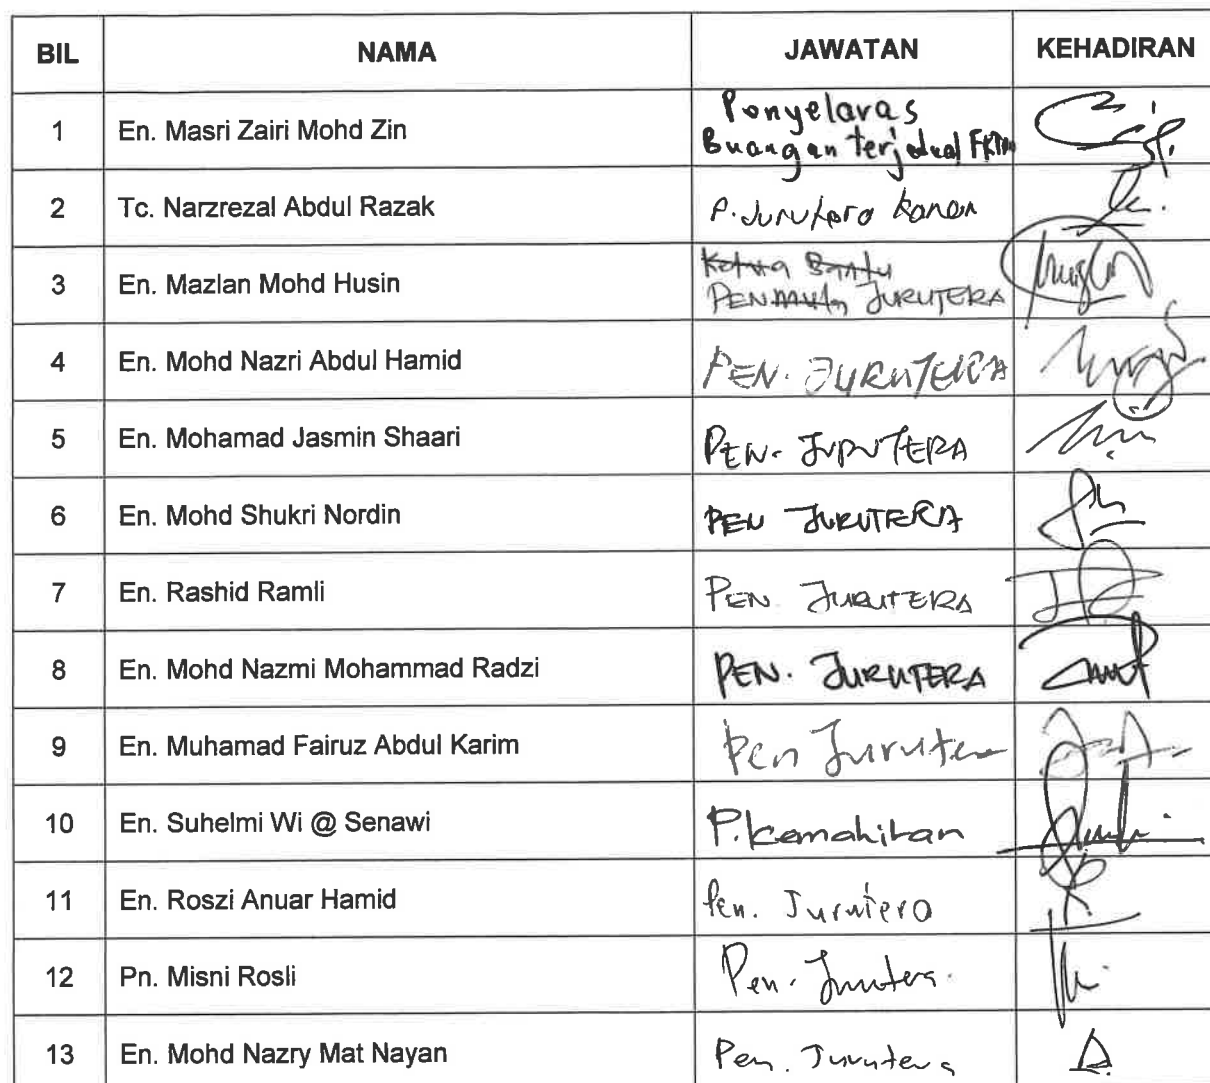 BIL NAMA JAWATAN KEHADIRAN
1 En. Masri Zairi Mohd Zin Penyelaras
Buangan terjadual
2 Tc. Narzrezal Abdul Razak P. Jurutera Kanan
3 En. Mazlan Mohd Husin Ketua Bantu
PEN JURUTERA
4 En. Mohd Nazri Abdul Hamid PEN. JURUTERA
5 En. Mohamad Jasmin Shaari PEN. JURUTERA
6 En. Mohd Shukri Nordin PEN JURUTERA
7 En. Rashid Ramli PEN. JURUTERA
8 En. Mohd Nazmi Mohammad Radzi PEN. JURUTERA
9 En. Muhamad Fairuz Abdul Karim Pen Jurutera
10 En. Suhelmi Wi @ Senawi P. kemahiran
11 En. Roszi Anuar Hamid Pen. Jurutera
12 Pn. Misni Rosli Pen. Jurutera
13 En. Mohd Nazry Mat Nayan Pen. Jurutera